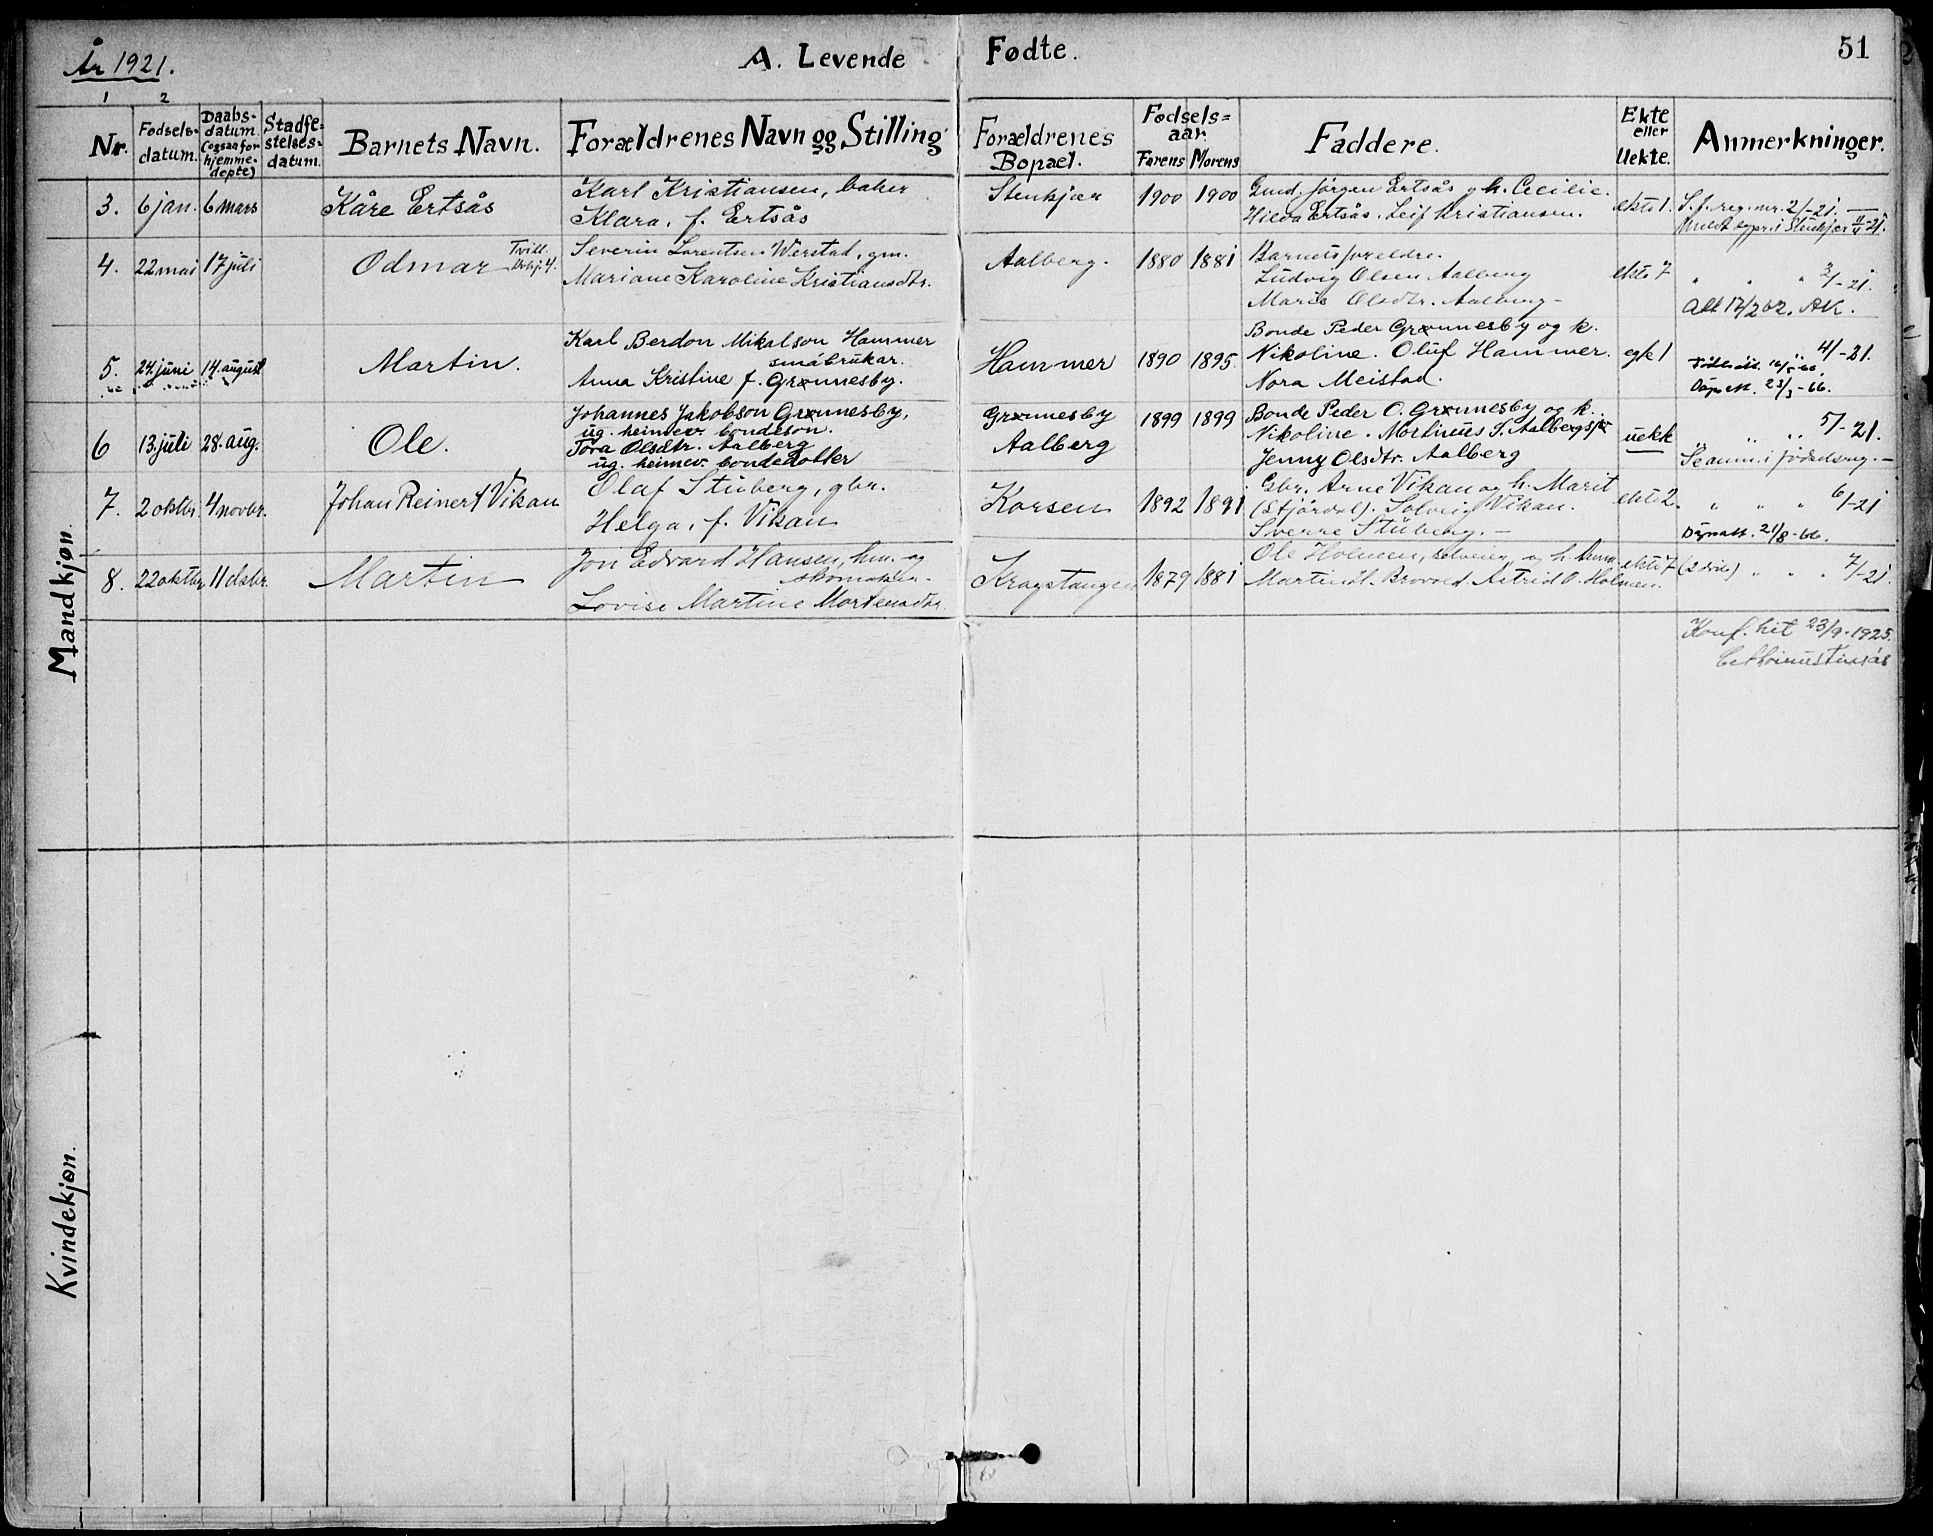 År 1921.
A. Levende Fødte.
51
1 2
Nr. Fødsels-datum. Daabs-datum (ogsaa for hjemme-døpte) Stadfe-stelses-datum. Barnets Navn. Forældrenes Navn og Stilling Forældrenes Bopæl. Fødsels-aar Farens Morens Faddere. Ekte eller Uekte. Anmerkninger.
Mandkjøn.
3. 6 jan. 6 mars Kåre Ertsås
Karl Kristiansen, baker
Klara, f. Ertsås
Stenkjær 1900 1900
Gmd. Jørgen Ertsås og h. Cecilie.
Hilda Ertsås. Leif Kristiansen.
ekte 1.
S.f. reg. nr. 2/-21.
4. 22 mai 17 juli Odmar Tvill.
Severin Lorentsen Werstad, gm.
Mariane Karoline Kristiansdtr.
Aalberg. 1880 1881
Barnets foreldre.
Ludvig Olsen Aalberg
Marie Olsdtr. Aalberg -
ekte 7
" " " 3/-21.
Att 17/2 62. AK.
5. 24. juni 14. august Martin.
Karl Berdon Mikalson Hammer
småbrukar.
Anna Kristine f. Grønnesby.
Hammer 1890 1895.
Bonde Peder Grønnesby og k.
Nikoline. Oluf Hammer.
Nora Meistad.
egte 1
" 4/-21.
Dåpsatt. 23/3-66.
6 13. juli 28. aug. Ole.
Johannes Jakobson Grønnesby,
ug. heimev. bondeson.
Tora Olsdtr. Aalberg
ug. heimev. bondedotter
Grønnesby
Aalberg
1899 1899
Bonde Peder O. Grønnesby og k.
Nikoline. Mortinus S. Aalberg
Jenny Olsdtr. Aalberg
uekte
" " " 5/-21.
Se anm. i fødselsreg. -
7. 2 oktbr. 4 novbr. Johan Reinert Vikan
Olaf Stuberg, gbr.
Helga, f. Vikan
Korsen 1892 1891
Gbr. Arne Vikan og h. Marit
(Stjørdal). Solveig Vikan.
Sverre Stuberg. -
ekte 2.
" " " 6/-21
Dåpsatt. 21/8-66.
8. 22 oktbr. 11 dsbr. Martin
Jon Edvard Hansen, hm. og
skomaker.
Lovise Martine Mortensdtr.
Kragstangen 1879 1881
Ole Holmen, selveier, og h. Anna
Martin H. Brovold. Astrid O. Holmen.
ekte 7
" " " 7/-21.
Konf. hit 23/9-1925.
Kvindekjøn.